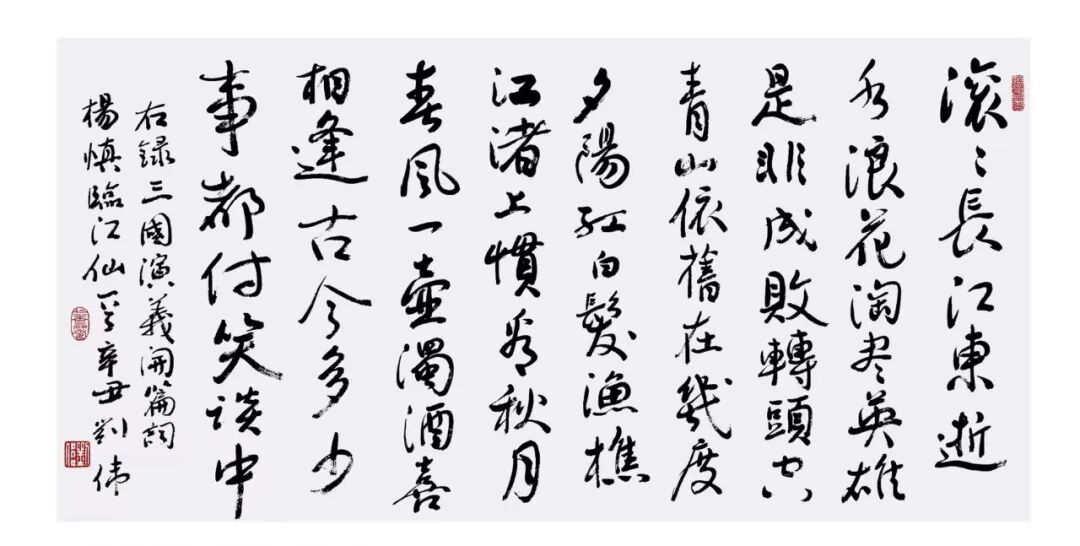 滚〻長江東逝
水浪花淘尽英雄
是非成敗轉頭空
青山依舊在幾度
夕陽紅白髮漁樵
江渚上慣看秋月
春風一壺濁酒喜
相逢古今多少
事都付笑談中
右録三國演義開篇詞
楊慎臨江仙一首辛丑劉伟